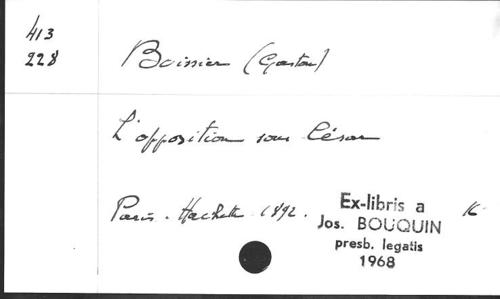 413
228
Boissier (Gaston)
L'opposition sous César
Paris. Hachette 1892. 16
Ex-libris a
Jos. BOUQUIN
presb. legatis
1968